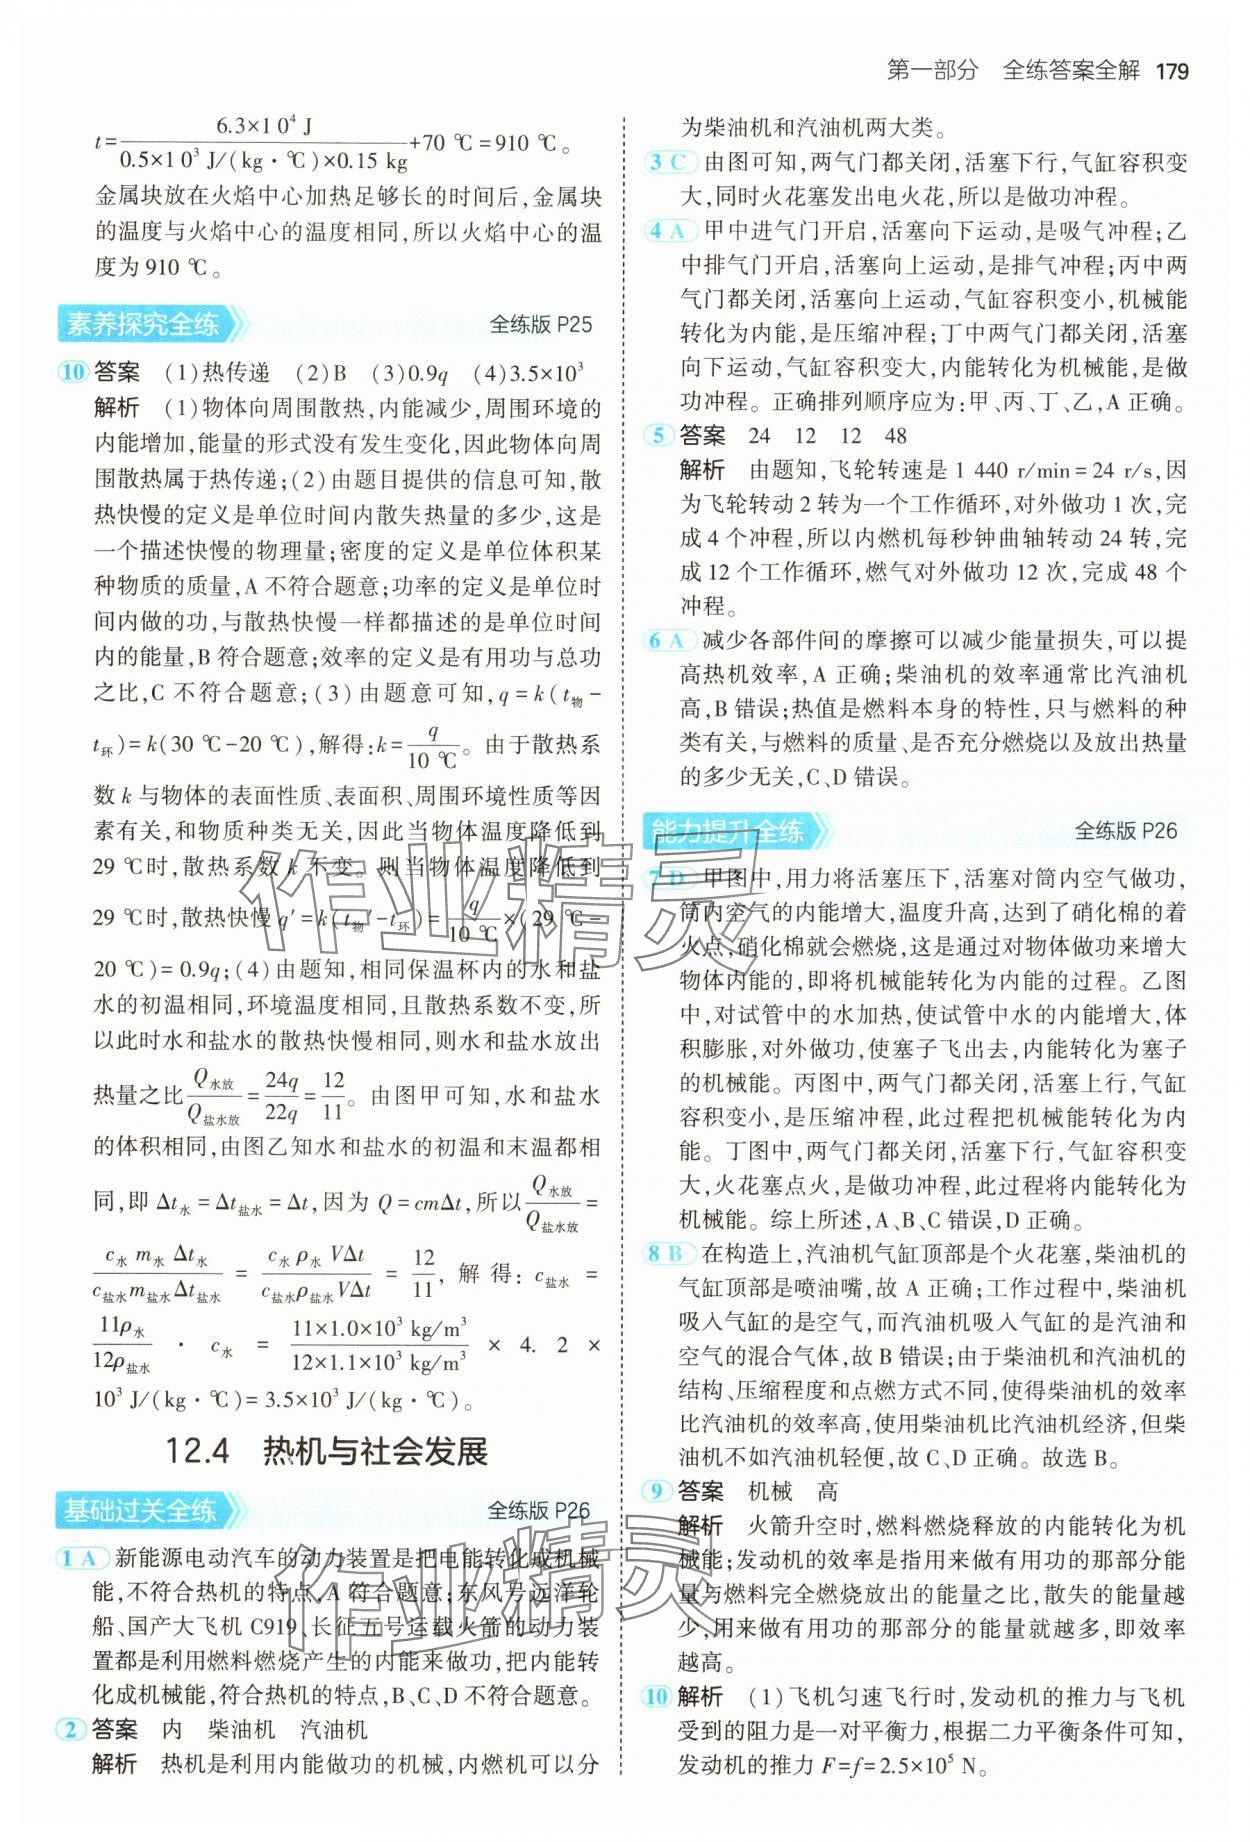 第一部分 全练答案全解 179
t=6.3×10⁴ J/0.5×10³ J/(kg·℃)×0.15 kg+70 ℃=910 ℃。
金属块放在火焰中心加热足够长的时间后,金属块
的温度与火焰中心的温度相同,所以火焰中心的温
度为910 ℃。
素养探究全练 全练版 P25
10 答案 (1)热传递 (2)B (3)0.9q (4)3.5×10³
解析 (1)物体向周围散热,内能减少,周围环境的
内能增加,能量的形式没有发生变化,因此物体向周
围散热属于热传递;(2)由题目提供的信息可知,散
热快慢的定义是单位时间内散失热量的多少,这是
一个描述快慢的物理量;密度的定义是单位体积某
种物质的质量,A 不符合题意;功率的定义是单位时
间内做的功,与散热快慢一样都描述的是单位时间
内的能量,B 符合题意;效率的定义是有用功与总功
之比,C 不符合题意;(3)由题意可知,q=k(t物-
t环)=k(30 ℃-20 ℃),解得:k=q/10 ℃。由于散热系
数 k 与物体的表面性质、表面积、周围环境性质等因
素有关,和物质种类无关,因此当物体温度降低到
29 ℃时,散热系数 k 不变。则当物体温度降低到
29 ℃时,散热快慢 q′=k(t物′-t环)=q/10 ℃×(29 ℃-
20 ℃)=0.9q;(4)由题知,相同保温杯内的水和盐
水的初温相同,环境温度相同,且散热系数不变,所
以此时水和盐水的散热快慢相同,则水和盐水放出
热量之比Q水放/Q盐水放=24q/22q=12/11。由图甲可知,水和盐水
的体积相同,由图乙知水和盐水的初温和末温都相
同,即 Δt水=Δt盐水=Δt,因为 Q=cmΔt,所以Q水放/Q盐水放=
c水m水Δt水/c盐水m盐水Δt盐水=c水ρ水VΔt/c盐水ρ盐水VΔt=12/11,解得:c盐水=
11ρ水/12ρ盐水·c水=11×1.0×10³ kg/m³/12×1.1×10³ kg/m³×4.2×
10³ J/(kg·℃)=3.5×10³ J/(kg·℃)。
12.4 热机与社会发展
基础过关全练 全练版 P26
1 A 新能源电动汽车的动力装置是把电能转化成机械
能,不符合热机的特点,A 符合题意;东风号远洋轮
船、国产大飞机 C919、长征五号运载火箭的动力装
置都是利用燃料燃烧产生的内能来做功,把内能转
化成机械能,符合热机的特点,B、C、D 不符合题意。
2 答案 内 柴油机 汽油机
解析 热机是利用内能做功的机械,内燃机可以分
为柴油机和汽油机两大类。
3 C 由图可知,两气门都关闭,活塞下行,气缸容积变
大,同时火花塞发出电火花,所以是做功冲程。
4 A 甲中进气门开启,活塞向下运动,是吸气冲程;乙
中排气门开启,活塞向上运动,是排气冲程;丙中两
气门都关闭,活塞向上运动,气缸容积变小,机械能
转化为内能,是压缩冲程;丁中两气门都关闭,活塞
向下运动,气缸容积变大,内能转化为机械能,是做
功冲程。正确排列顺序应为:甲、丙、丁、乙,A 正确。
5 答案 24 12 12 48
解析 由题知,飞轮转速是 1 440 r/min=24 r/s,因
为飞轮转动 2 转为一个工作循环,对外做功 1 次,完
成 4 个冲程,所以内燃机每秒钟曲轴转动 24 转,完
成 12 个工作循环,燃气对外做功 12 次,完成 48 个
冲程。
6 A 减少各部件间的摩擦可以减少能量损失,可以提
高热机效率,A 正确;柴油机的效率通常比汽油机
高,B 错误;热值是燃料本身的特性,只与燃料的种
类有关,与燃料的质量、是否充分燃烧以及放出热量
的多少无关,C、D 错误。
能力提升全练 全练版 P26
7 D 甲图中,用力将活塞压下,活塞对筒内空气做功,
筒内空气的内能增大,温度升高,达到了硝化棉的着
火点,硝化棉就会燃烧,这是通过对物体做功来增大
物体内能的,即将机械能转化为内能的过程。乙图
中,对试管中的水加热,使试管中水的内能增大,体
积膨胀,对外做功,使塞子飞出去,内能转化为塞子
的机械能。丙图中,两气门都关闭,活塞上行,气缸
容积变小,是压缩冲程,此过程把机械能转化为内
能。丁图中,两气门都关闭,活塞下行,气缸容积变
大,火花塞点火,是做功冲程,此过程将内能转化为
机械能。综上所述,A、B、C 错误,D 正确。
8 B 在构造上,汽油机气缸顶部是个火花塞,柴油机的
气缸顶部是喷油嘴,故 A 正确;工作过程中,柴油机
吸入气缸的是空气,而汽油机吸入气缸的是汽油和
空气的混合气体,故 B 错误;由于柴油机和汽油机的
结构、压缩程度和点燃方式不同,使得柴油机的效率
比汽油机的效率高,使用柴油机比汽油机经济,但柴
油机不如汽油机轻便,故 C、D 正确。故选 B。
9 答案 机械 高
解析 火箭升空时,燃料燃烧释放的内能转化为机
械能;发动机的效率是指用来做有用功的那部分能
量与燃料完全燃烧放出的能量之比,散失的能量越
少,用来做有用功的那部分的能量就越多,即效率
越高。
10 解析 (1)飞机匀速飞行时,发动机的推力与飞机
受到的阻力是一对平衡力,根据二力平衡条件可知,
发动机的推力 F=f=2.5×10⁵ N。
作业精灵
作业精灵